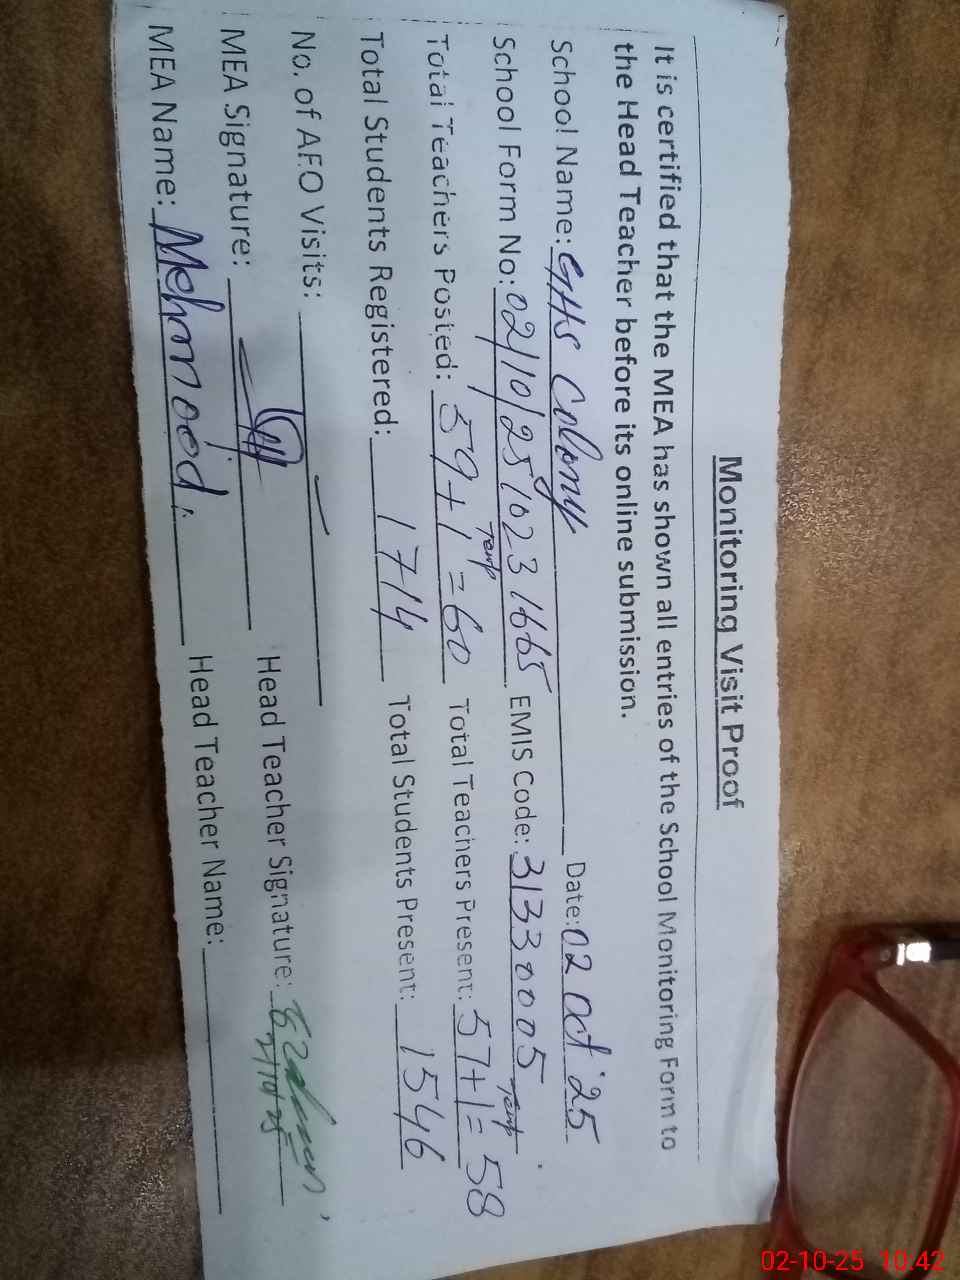 Monitoring Visit Proof
It is certified that the MEA has shown all entries of the School Monitoring Form to
the Head Teacher before its online submission.
School Name: GHS Colony Date: 02 Oct '25
School Form No: 02/10/25/0231665 EMIS Code: 31330005
Total Teachers Posted: 59+1 Temp = 60 Total Teachers Present: 57+1 Temp = 58
Total Students Registered: 1714 Total Students Present: 1546
No. of AEO Visits: —
MEA Signature: Head Teacher Signature: 2/10/25
MEA Name: Mehmood. Head Teacher Name:
02-10-25 10:42